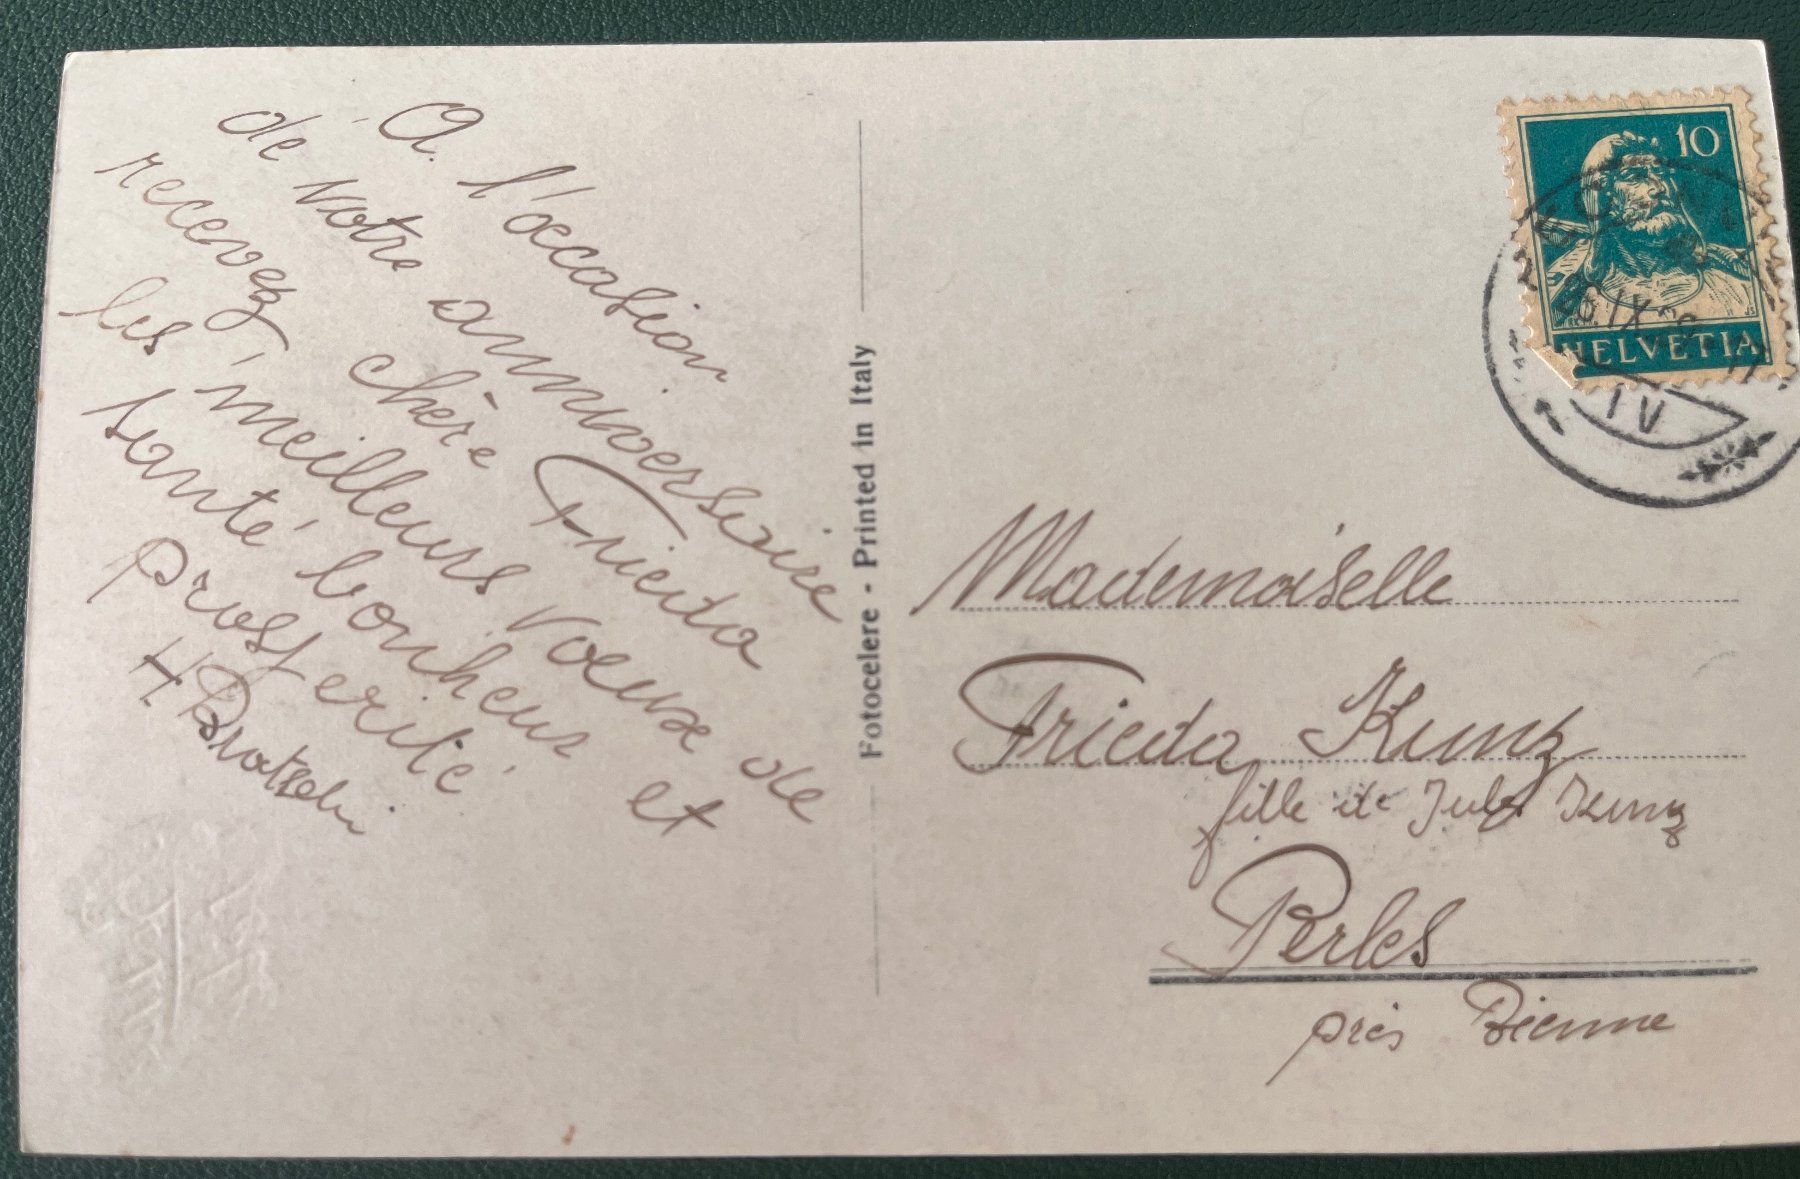 A l'occasion
de votre anniversaire
recevez chère Frieda
les meilleurs voeux de
santé bonheur et
prosperité
H
Fotocelere - Printed in Italy
10
HELVETIA
IX
IV
Mademoiselle
Frieda Kunz
fille de Jules Kunz
Perles
près Bienne